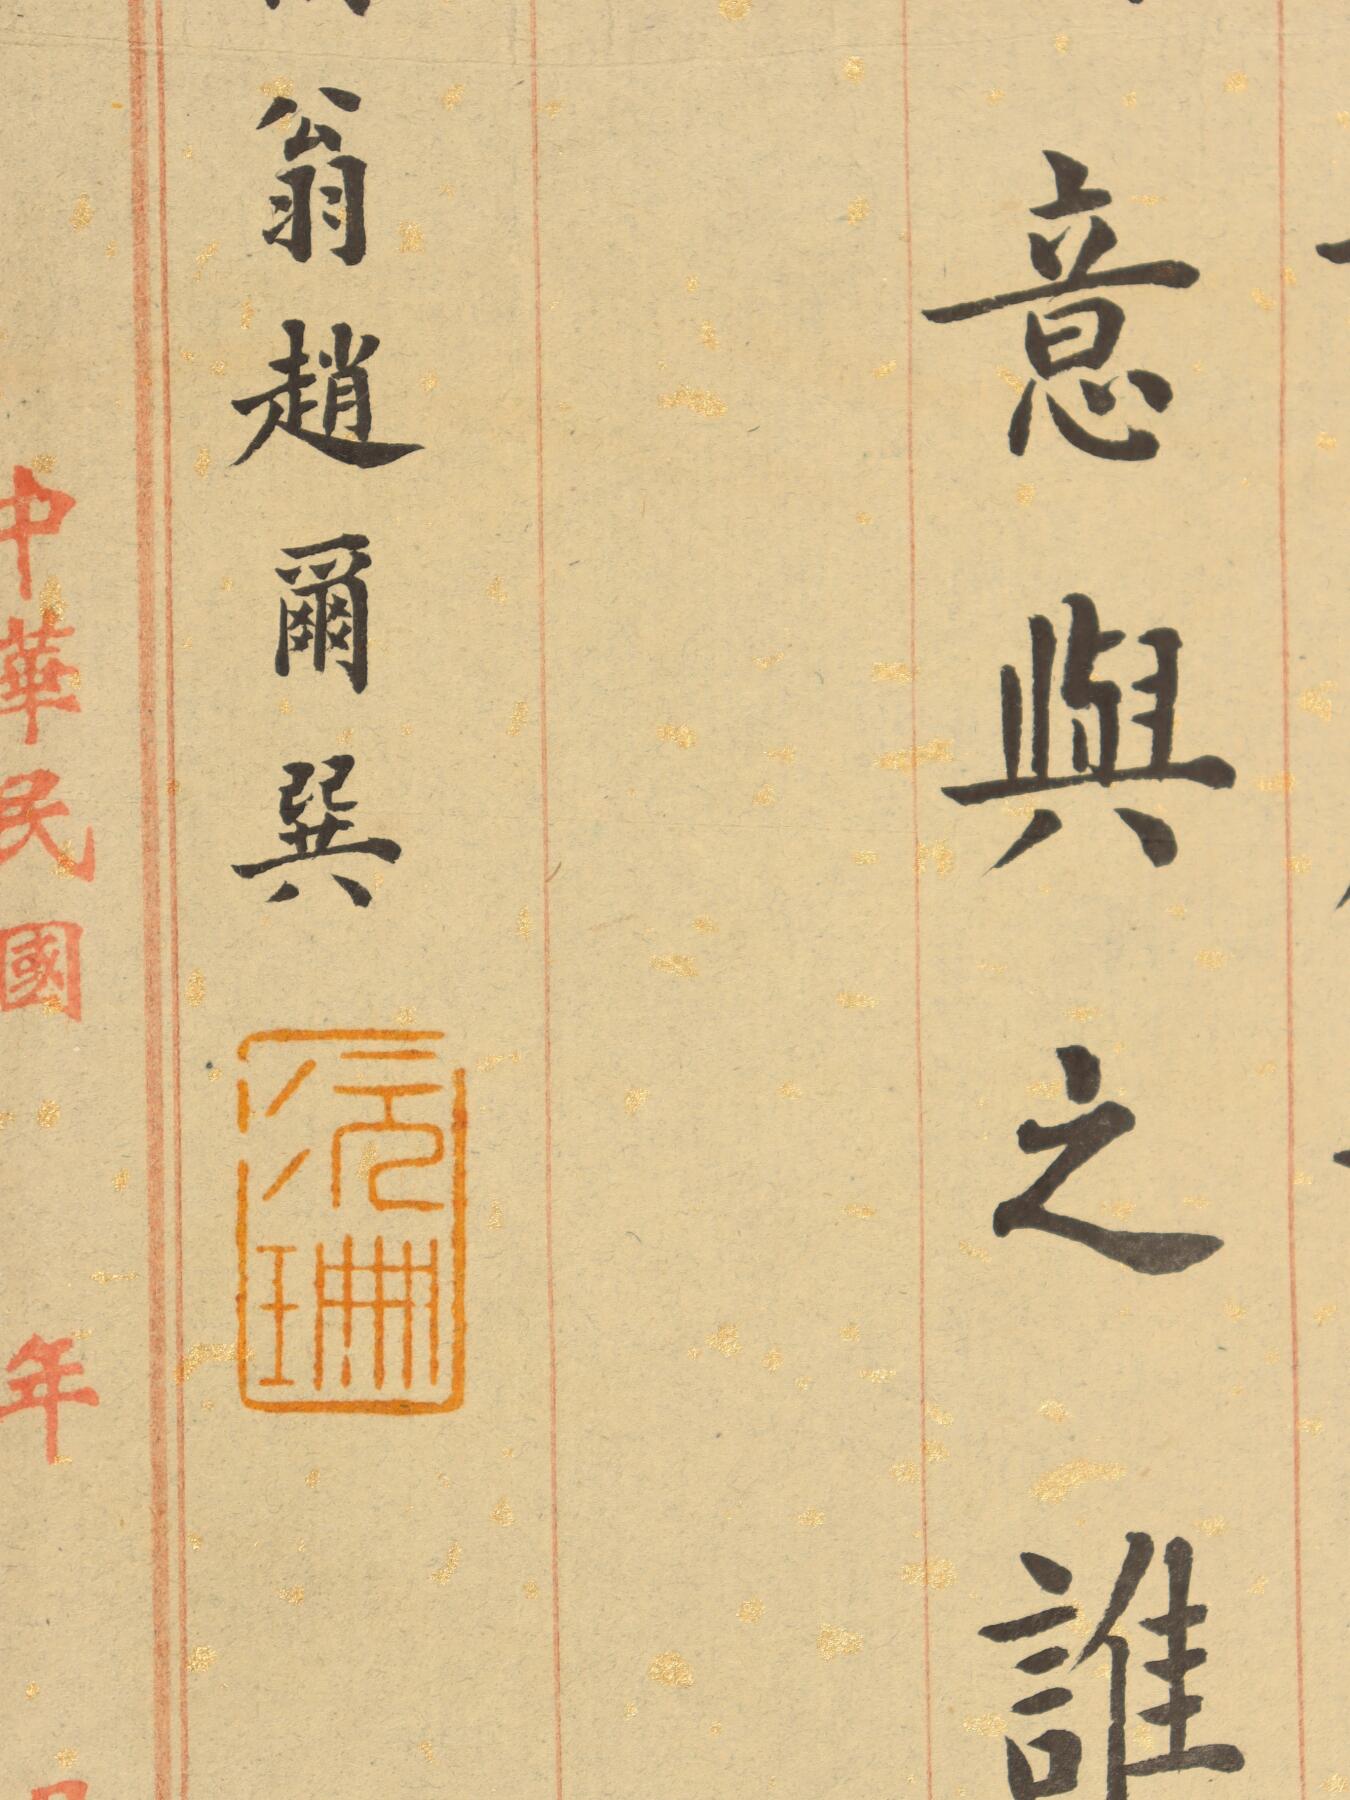 意與之誰
翁趙爾巽
中華民國 年